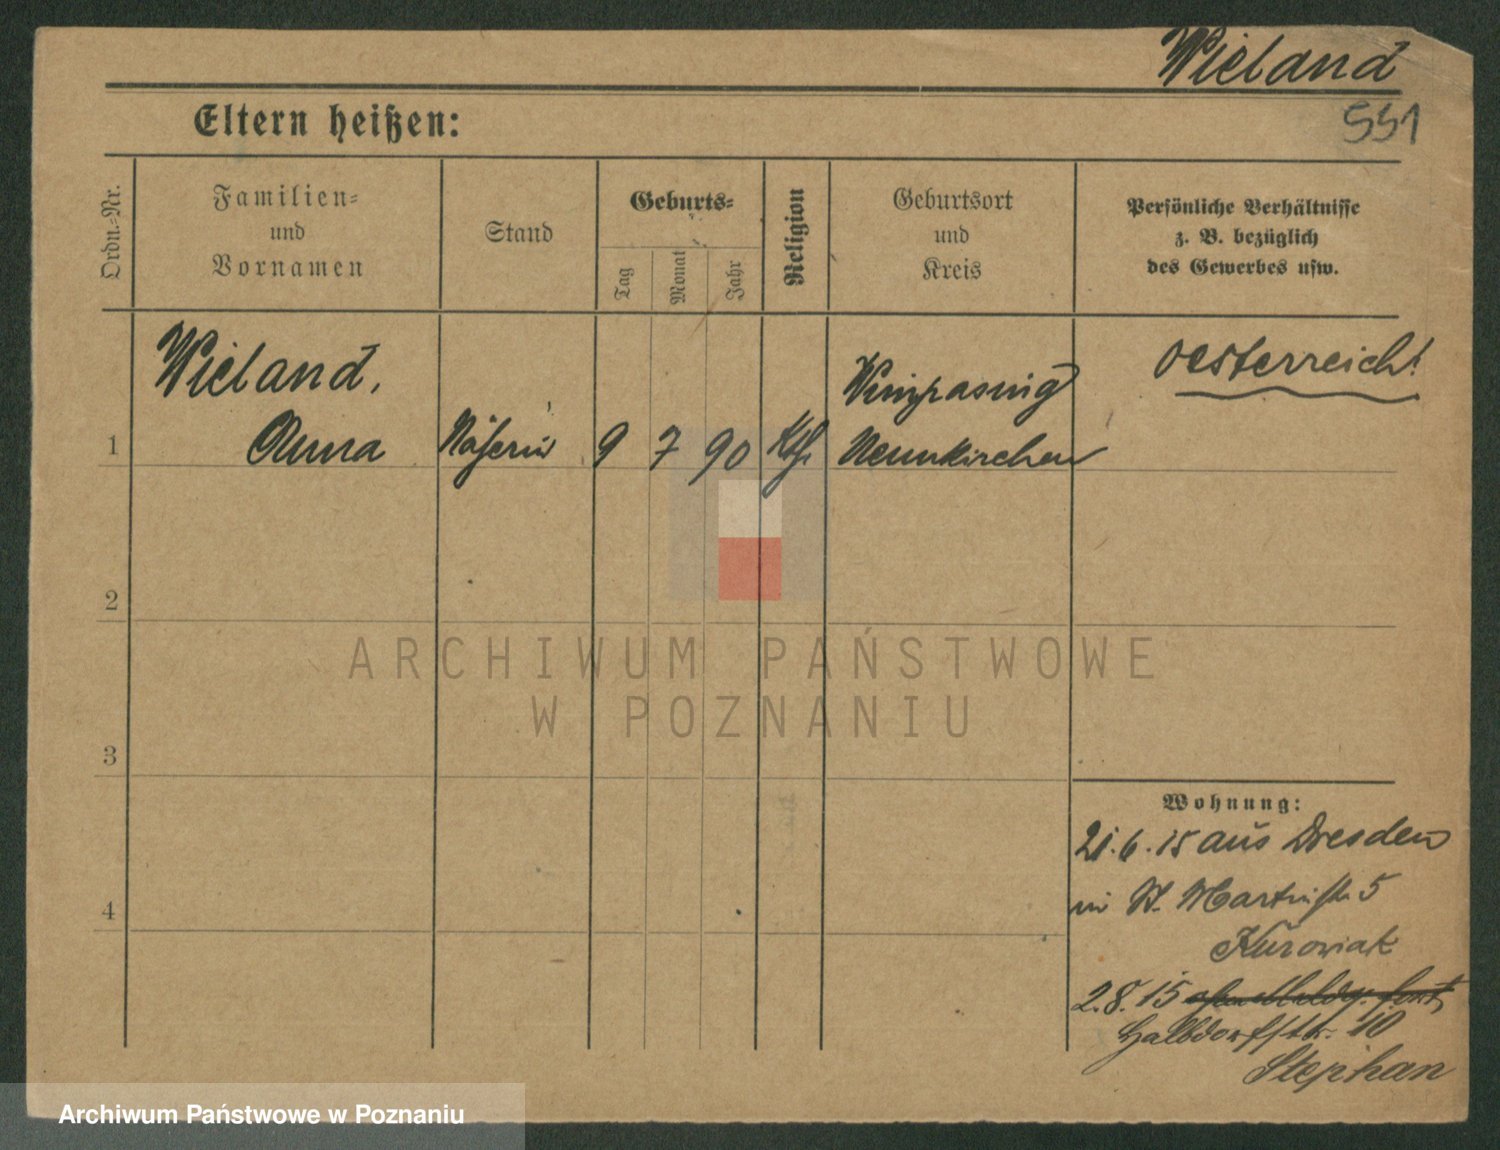 Wieland
551
Eltern heißen:
Ordn.-Nr.
Familien-
und
Vornamen
Stand
Geburts-
Tag
Monat
Jahr
Religion
Geburtsort
und
Kreis
Persönliche Verhältnisse
z. B. bezüglich
des Gewerbes usw.
Wieland,
Anna
1
Näherin
9
7
90
Kth.
Wimpasing
Neunkirchen
Oesterreich!
2
3
4
Wohnung:
21.6.15 aus Dresden
in St. Martinstr. 5
Kurowiak
2.8.15 ohne Meldg. fort
Halbdorfstr. 10
Stephan
ARCHIWUM PAŃSTWOWE
W POZNANIU
Archiwum Państwowe w Poznaniu